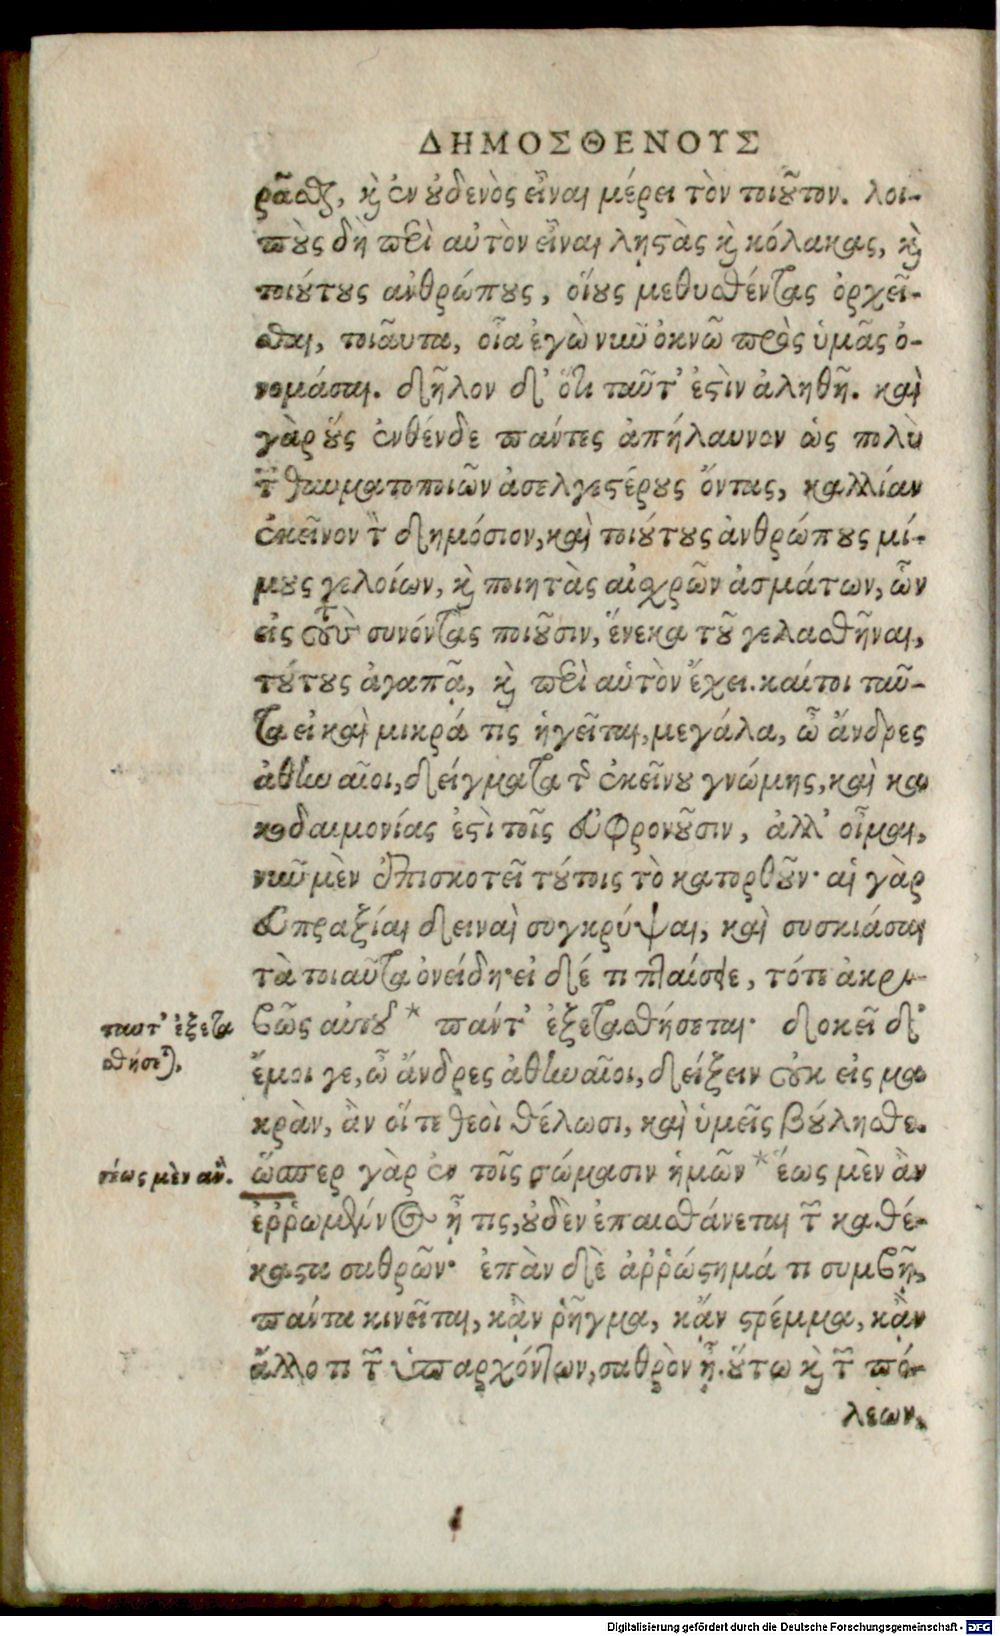 ΔΗΜΟΣΘΕΝΟΥΣ
ρᾶσθζ, κỳ ἐν ȣ̓δενὸς εἶναι μέρει τὸν τοιȣ͂τον. λοι-
πȣ̀ς δὴ περὶ αὐτὸν εἶναι λῃϛὰς κỳ κόλακας, κỳ
τοιȣ́τȣς ἀνθρώπȣς, οἵȣς μεθυσθέντας ὀρχεῖ-
σθαι, τοιαῦτα, οἷα ἐγὼ νῦν ὀκνῶ πρὸς ὑμᾶς ὀ-
νομάσαι. δῆλον δ᾽ ὅτι ταῦτ᾽ ἐϛὶν ἀληθῆ. καὶ
γὰρ ȣ̔̀ς ἐνθένδε πάντες ἀπήλαυνον ὡς πολὺ
τῶν θαυματοποιῶν ἀσελγεϛέρȣς ὄντας, καλλίαν
ἐκεῖνον τὸν δημόσιον, καὶ τοιȣ́τȣς ἀνθρώπȣς μί-
μȣς γελοίων, κỳ ποιητὰς αἰσχρῶν ἀσμάτων, ὧν
εἰς τοὺς συνόντας ποιȣ͂σιν, ἕνεκα τȣ͂ γελασθῆναι,
τȣ́τȣς ἀγαπᾷ, κỳ περὶ αὑτὸν ἔχει. καίτοι ταῦ-
τα εἰ καὶ μικρά τις ἡγεῖται, μεγάλα, ὦ ἄνδρες
ἀθηναῖοι, δείγματα τῆς ἐκείνȣ γνώμης, καὶ κα
κοδαιμονίας ἐϛὶ τοῖς εὖ φρονȣ͂σιν, ἀλλ᾽ οἶμαι,
νῦν μὲν ἐπισκοτεῖ τȣ́τοις τὸ κατορθȣ͂ν· αἱ γὰρ
εὐπραξίαι δειναὶ συγκρύψαι, καὶ συσκιάσαι
τὰ τοιαῦτα ὀνείδη· εἰ δέ τι πταίσειε, τότε ἀκρι-
βῶς αὐτοῦ * πάντ᾽ ἐξετασθήσεται· δοκεῖ δ᾽
ταῦτ᾽ ἐξετα
σθήσεται.
ἔμοιγε, ὦ ἄνδρες ἀθηναῖοι, δείξειν οὐκ εἰς μα
κρὰν, ἂν οἵ τε θεοὶ θέλωσι, καὶ ὑμεῖς βȣ́λησθε.
ὥσπερ γὰρ ἐν τοῖς σώμασιν ἡμῶν * ἕως μὲν ἂν
τέως μὲν ἂν.
ἐῤῥωμένος ᾖ τις, ȣ̓δὲν ἐπαισθάνεται τῶν καθέ-
καϛα σαθρῶν· ἐπὰν δὲ ἀῤῥώϛημά τι συμβῇ,
πάντα κινεῖται, κἂν ῥῆγμα, κἂν ϛρέμμα, κἂν
ἄλλο τι τῶν ὑπαρχόντων, σαθρὸν ᾖ. ȣ̔́τω κỳ τῶν πό-
λεων,
Digitalisierung gefördert durch die Deutsche Forschungsgemeinschaft - DFG